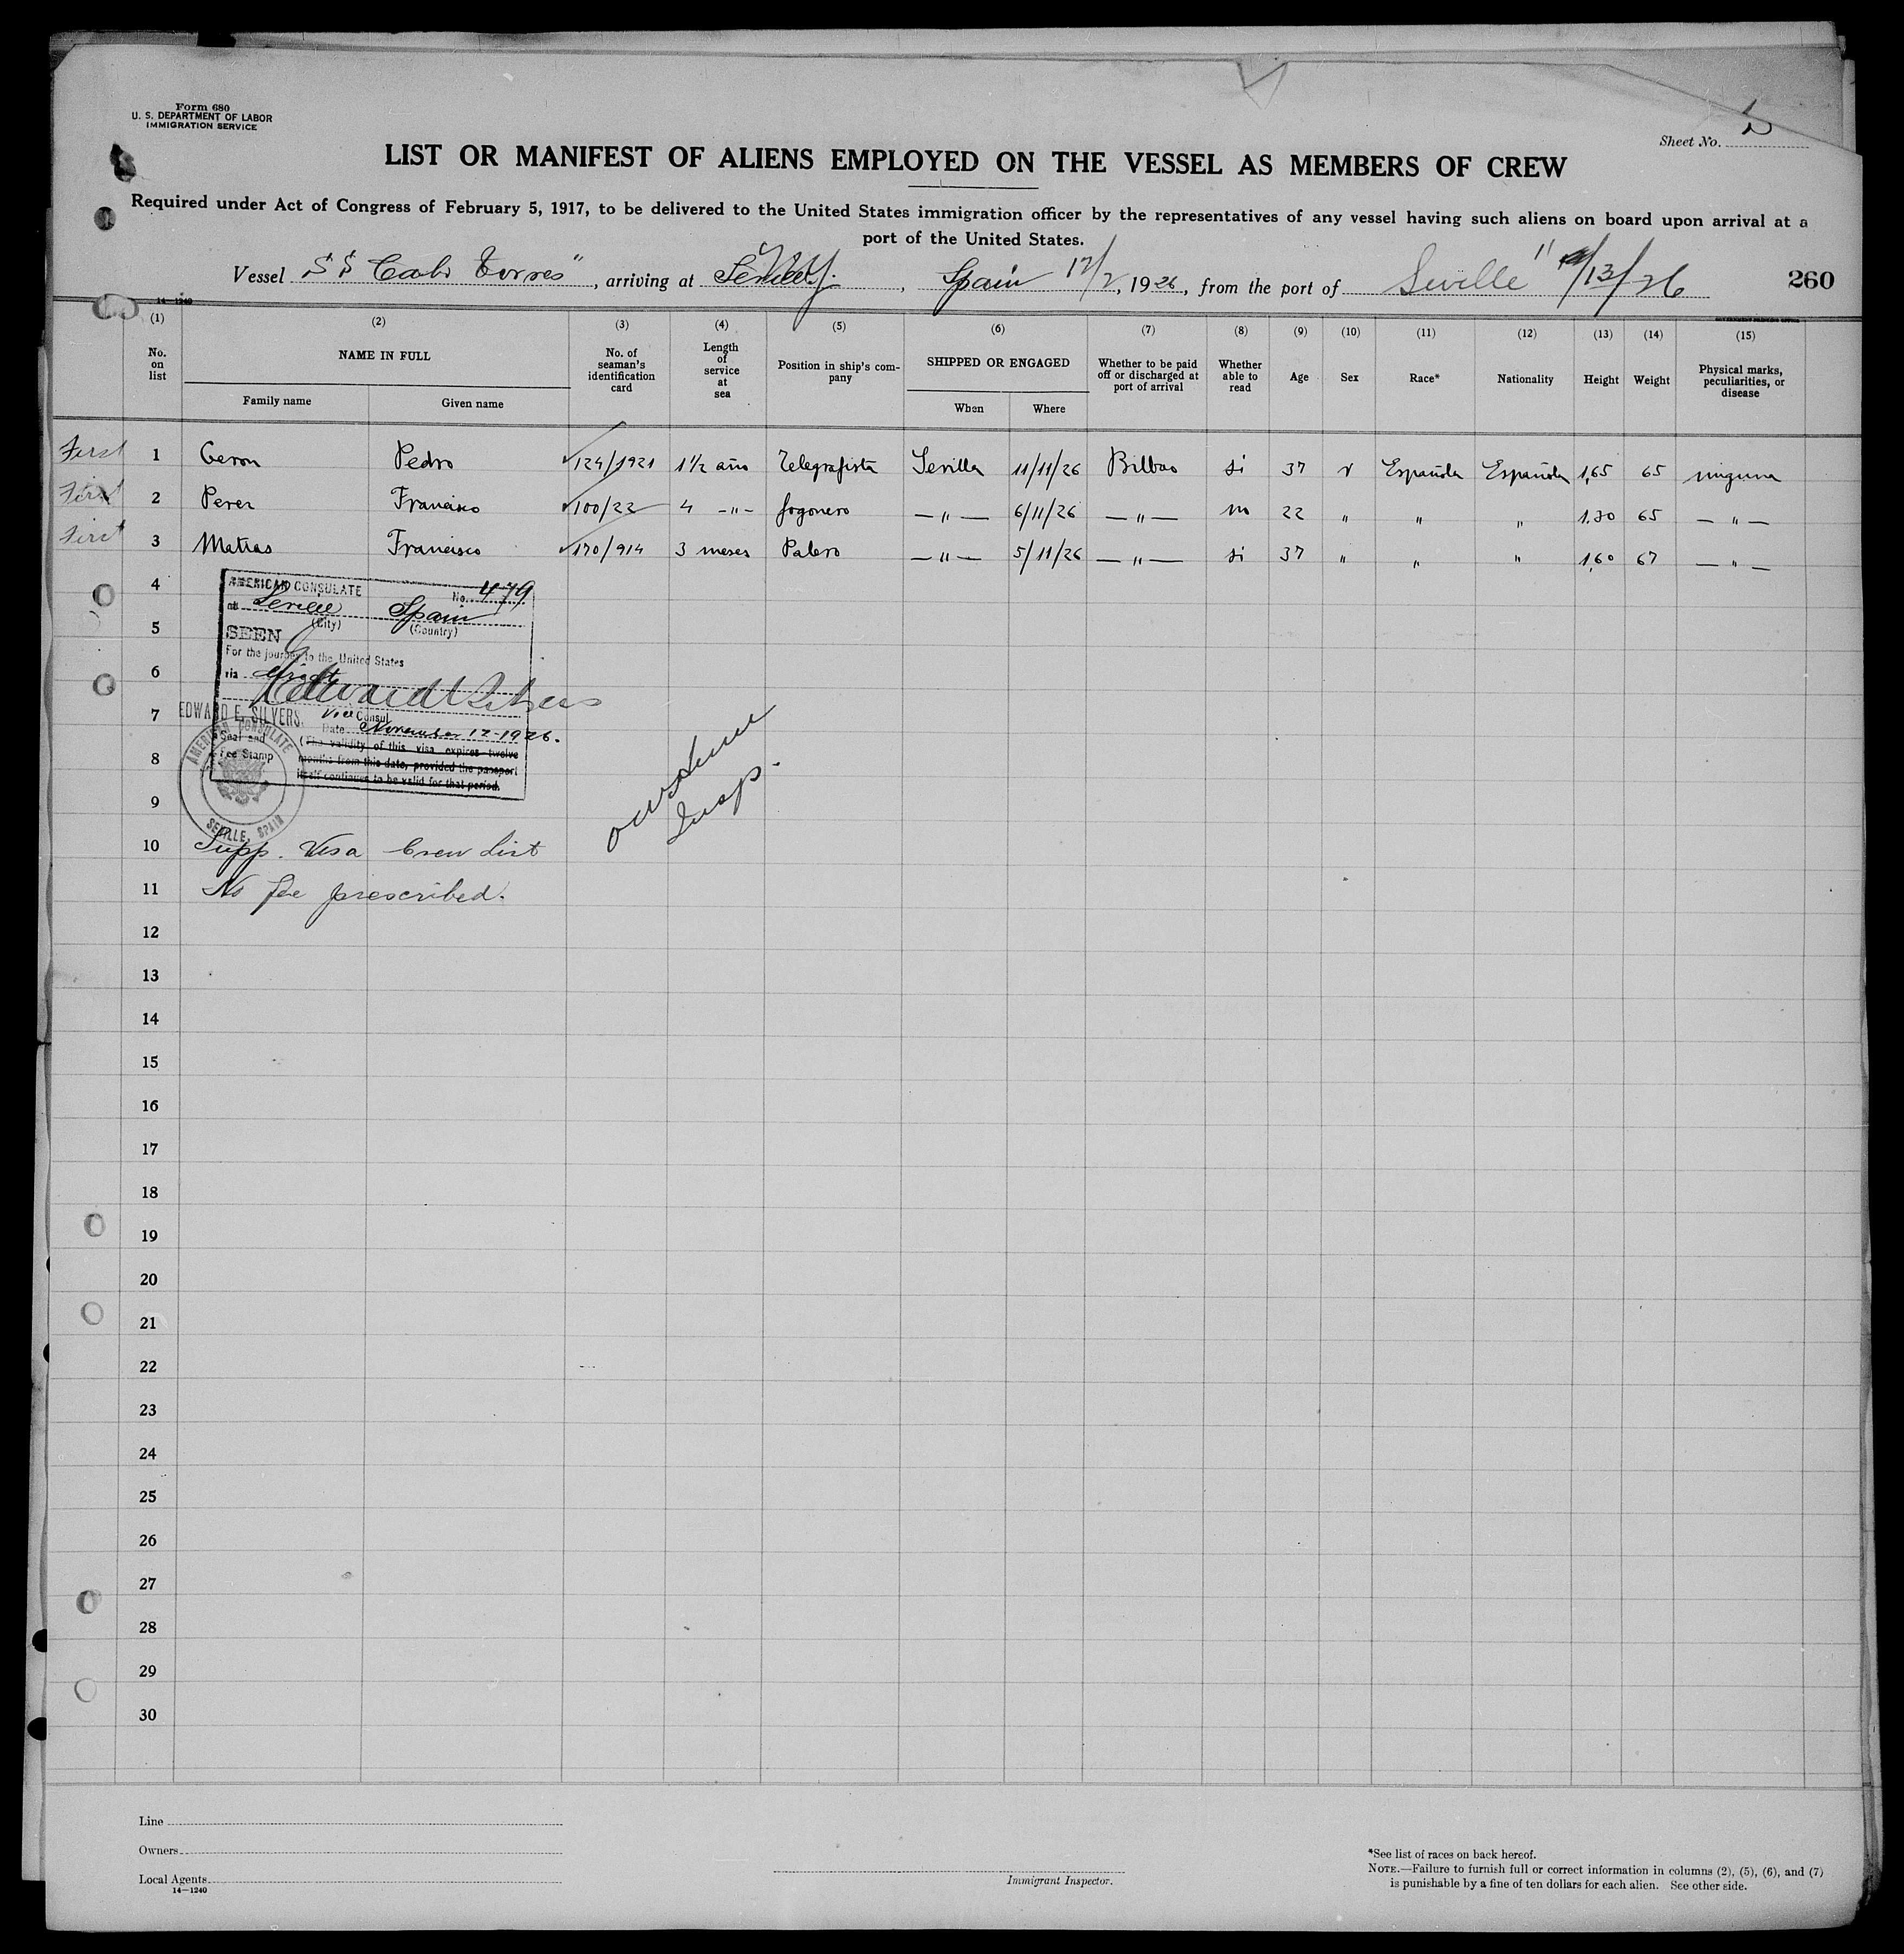 Form 680
U. S. DEPARTMENT OF LABOR
IMMIGRATION SERVICE
Sheet No.
LIST OR MANIFEST OF ALIENS EMPLOYED ON THE VESSEL AS MEMBERS OF CREW
Required under Act of Congress of February 5, 1917, to be delivered to the United States immigration officer by the representatives of any vessel having such aliens on board upon arrival at a
port of the United States.
Vessel S S Cabo Torres", arriving at , Spain 12/2, 1926, from the port of Seville 11/13/26 260
14—1240
(1) (2) (3) (4) (5) (6) (7) (8) (9) (10) (11) (12) (13) (14) (15)
No. on list NAME IN FULL Family name Given name No. of seaman's identification card Length of service at sea Position in ship's company SHIPPED OR ENGAGED When Where Whether to be paid off or discharged at port of arrival Whether able to read Age Sex Race* Nationality Height Weight Physical marks, peculiarities, or disease
First 1 Ceron Pedro 124/1921 1 1/2 año Telegrafista Sevilla 11/11/26 Bilbao si 37 v Española Española 1,65 65 ninguna
First 2 Perez Francisco 100/22 4 —"— fogonero —"— 6/11/26 —"— no 22 " " " 65 —"—
First 3 Matias Francisco 170/914 3 meses Palero —"— 5/11/26 —"— si 37 " " " 1,60 67 —"—
4
AMERICAN CONSULATE No. 479
at Seville Spain
5
(City) (Country)
SEEN
For the journey to the United States
6
via direct
7
EDWARD E. SILVERS, Vice Consul
Date November 12-1926.
Seal and Fee Stamp
(The validity of this visa expires twelve
8
months from this date, provided the passport
itself continues to be valid for that period.
AMERICAN CONSULATE
SEVILLE, SPAIN
9
Insp.
10 Supp. Visa Crew List
11 No fee prescribed.
12
13
14
15
16
17
18
19
20
21
22
23
24
25
26
27
28
29
30
Line
Owners
Local Agents
14—1240
Immigrant Inspector.
*See list of races on back hereof.
NOTE.—Failure to furnish full or correct information in columns (2), (5), (6), and (7)
is punishable by a fine of ten dollars for each alien. See other side.